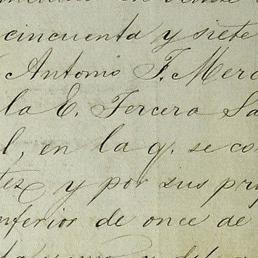 cincuenta y siete
Antonio F. Merc
la E. Tercera Sa
l, en la q. se co
tez y por sus pro
nferios de once de